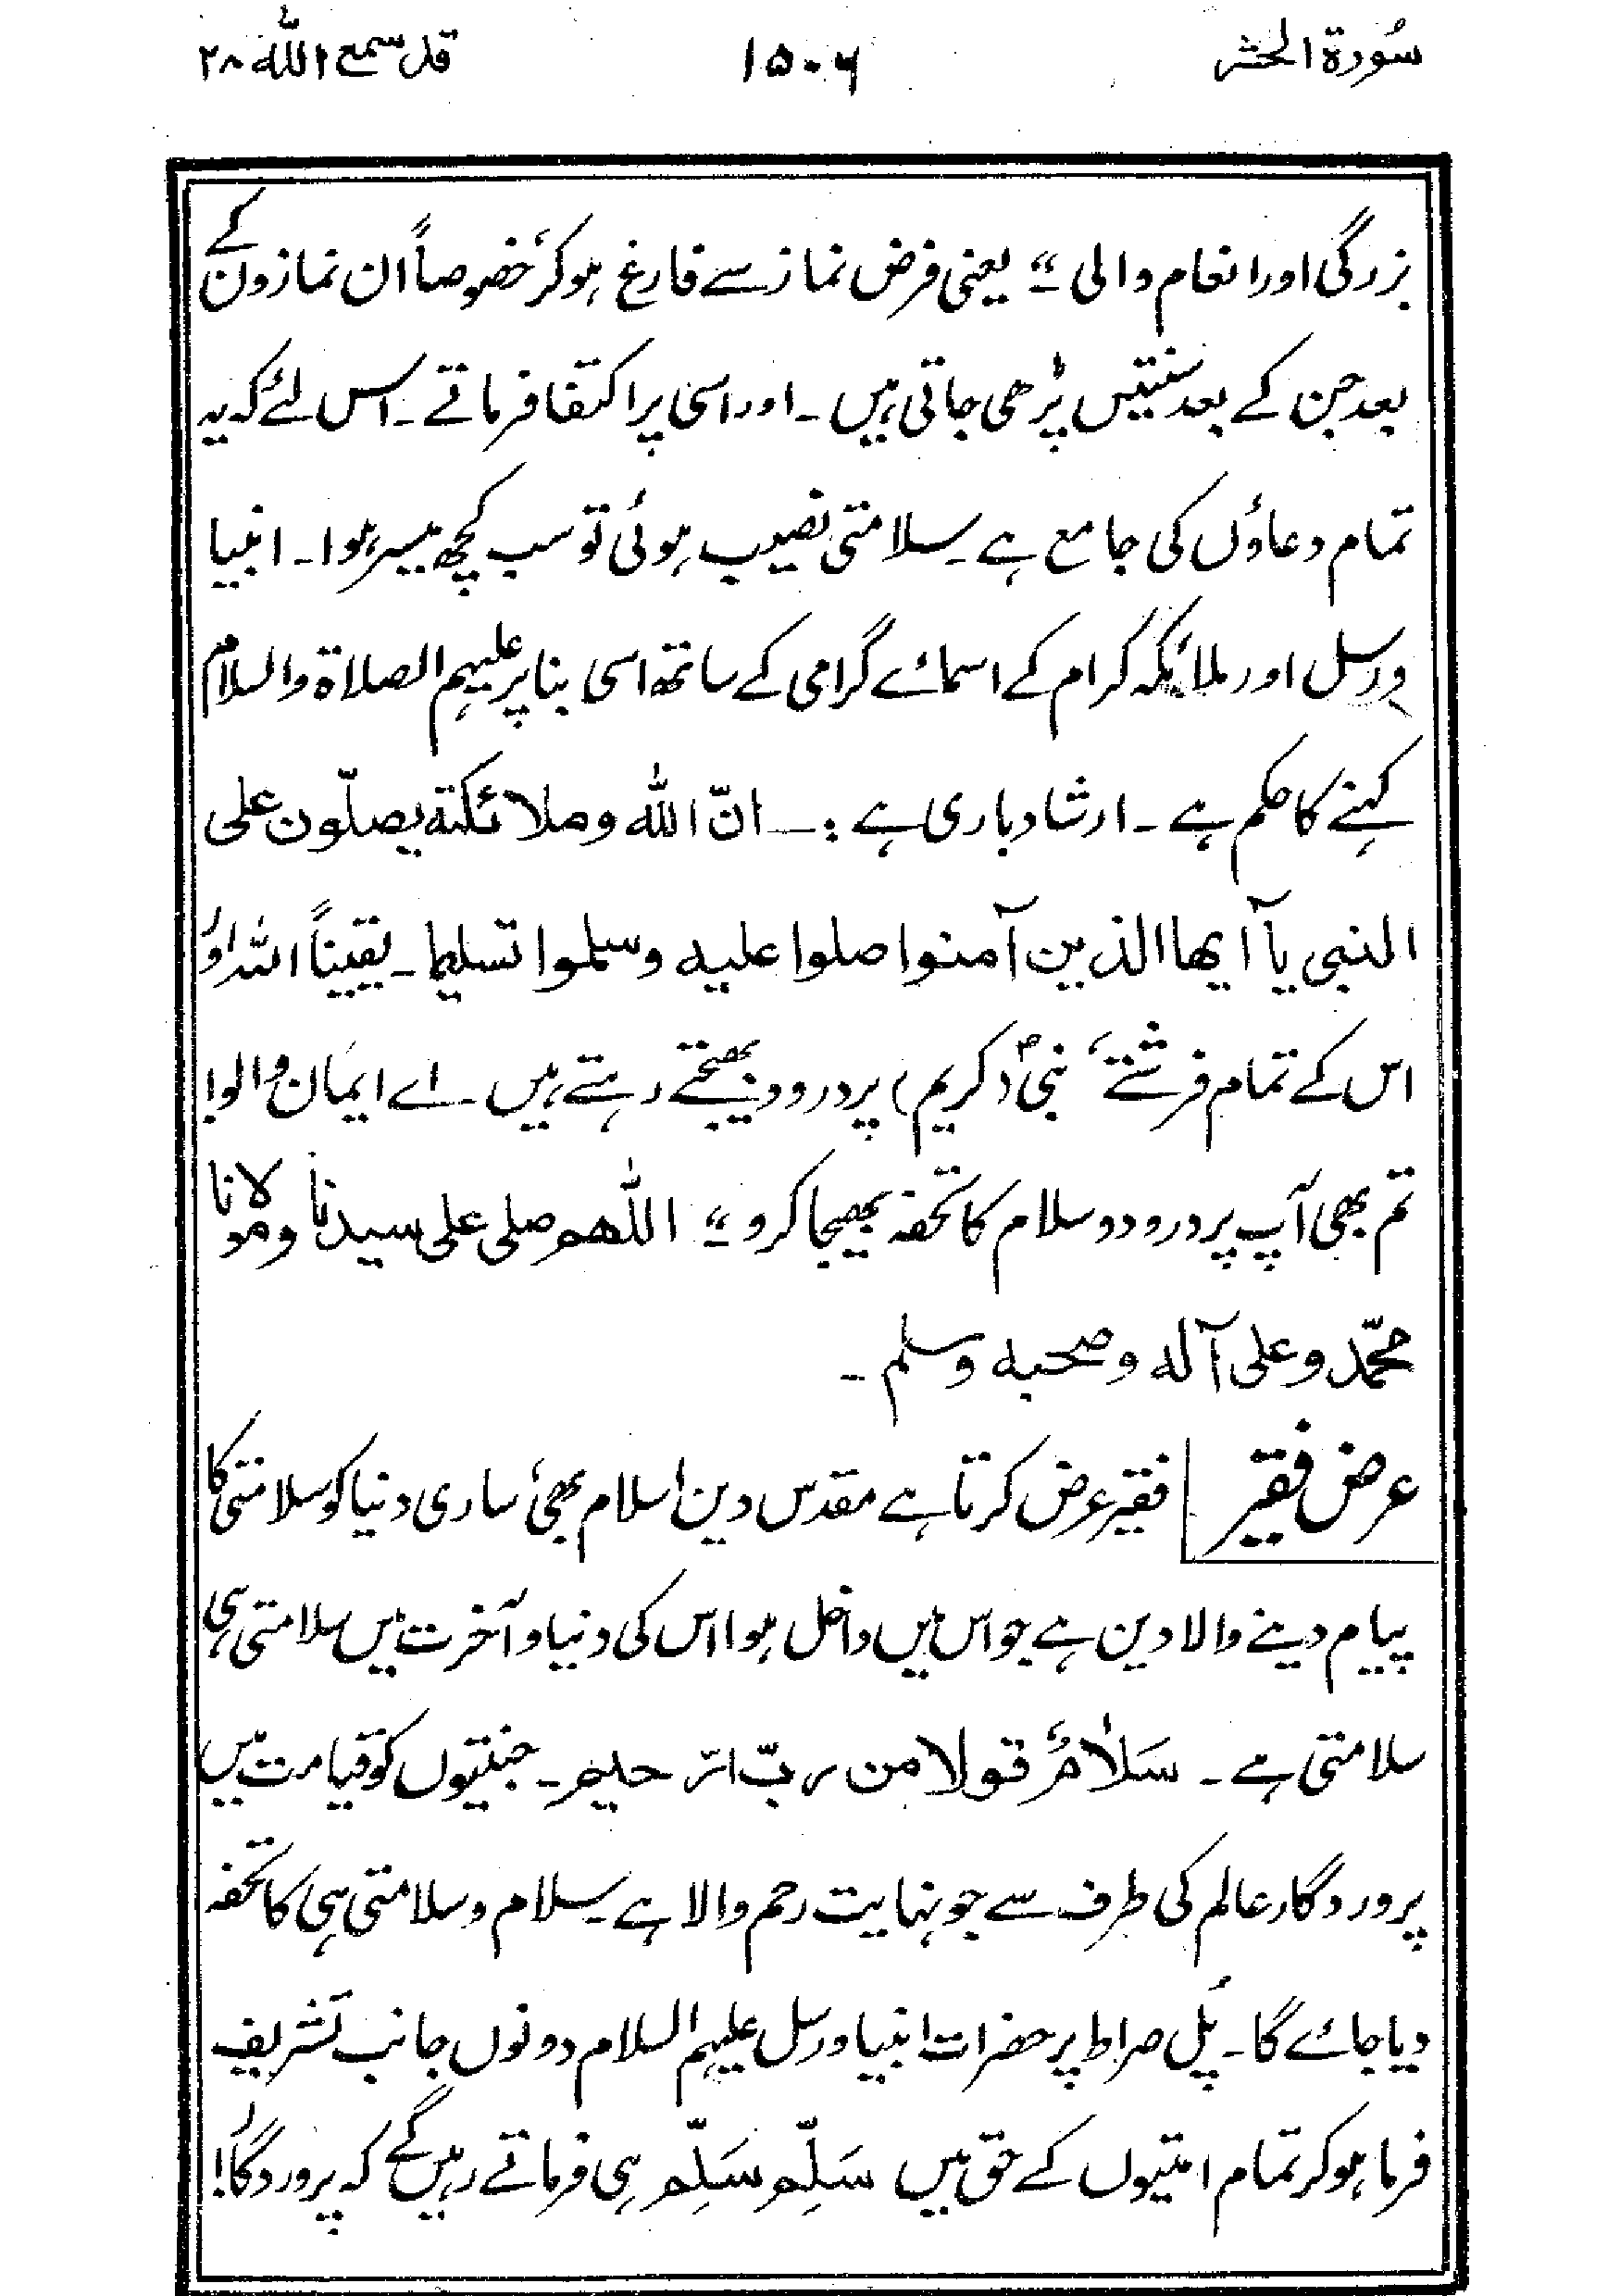 سُورۃ الحشر ۱۵۰۶ قد سمع اللّٰه ۲۸
بزرگی اور انعام والی“ یعنی فرض نماز سے فارغ ہو کر، خصوصاً ان نمازوں کے
بعد جن کے بعد سنتیں پڑھی جاتی ہیں۔ اور اسی پر اکتفا فرماتے۔ اس لئے کہ یہ
تمام دعاؤں کی جامع ہے۔ سلامتی نصیب ہوئی تو سب کچھ میسر ہوا۔ انبیا
و رسل اور ملائکہ کرام کے اسمائے گرامی کے ساتھ اسی بنا پر علیہم الصلاۃ والسلام
کہنے کا حکم ہے۔ ارشاد باری ہے :ـــ انّ اللّٰه وملائكته يصلّون على
النبی یآ ایها الذین آمنوا صلوا علیه وسلموا تسلیما۔ یقیناً اللہ اور
اس کے تمام فرشتے، نبیؐ (کریم) پر درود بھیجتے رہتے ہیں۔ اے ایمان والو!
تم بھی آپ پر درود و سلام کا تحفہ بھیجا کرو“ اللّٰهم صلی علی سیدنا ومولانا
محمّد وعلی آله وصحبه وسلم۔
عرض فقیر فقیر عرض کرتا ہے مقدس دین اسلام بھی، ساری دنیا کو سلامتی کا
پیام دینے والا دین ہے جو اس میں داخل ہوا اس کی دنیا و آخرت میں سلامتی ہی
سلامتی ہے۔ سَلاٰمٌ قولا من ربّ الرّ حیم۔ جنتیوں کو قیامت میں
پروردگار عالم کی طرف سے جو نہایت رحم والا ہے سلام و سلامتی ہی کا تحفہ
دیا جائے گا۔ پُل صراط پر حضرات انبیا و رسل علیہم السلام دونوں جانب تشریف
فرما ہو کر تمام امتیوں کے حق میں سَلِّم سَلِّم ہی فرماتے رہیں گے کہ پروردگار!